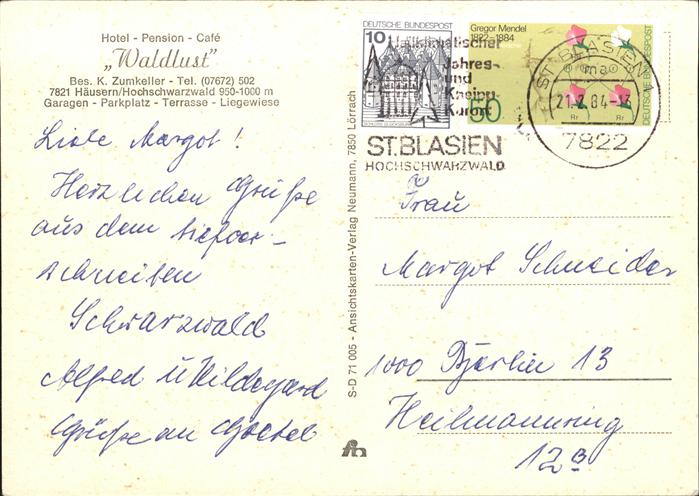 Hotel - Pension - Café
„Waldlust"
Bes. K. Zumkeller - Tel. (07672) 502
7821 Häusern/Hochschwarzwald 950-1000 m
Garagen - Parkplatz - Terrasse - Liegewiese
Liebe Margot!
Herzlichen Grüße
aus dem tiefver-
schneiten
Schwarzwald
Alfred u Hildegard
Grüße an
S-D 71 005 - Ansichtskarten-Verlag Neumann, 7850 Lörrach
DEUTSCHE BUNDESPOST
10
Gregor Mendel
1822-1884
50
DEUTSCHE BUNDESPOST
Heilklimatischer
Jahres-
und
Kneipp-
Kurort
ST.BLASIEN
HOCHSCHWARZWALD
ST. BLASIEN
ma
21.2.84-13
7822
Frau
Margot Schneider
1000 Berlin 13
Heilmannring
12B